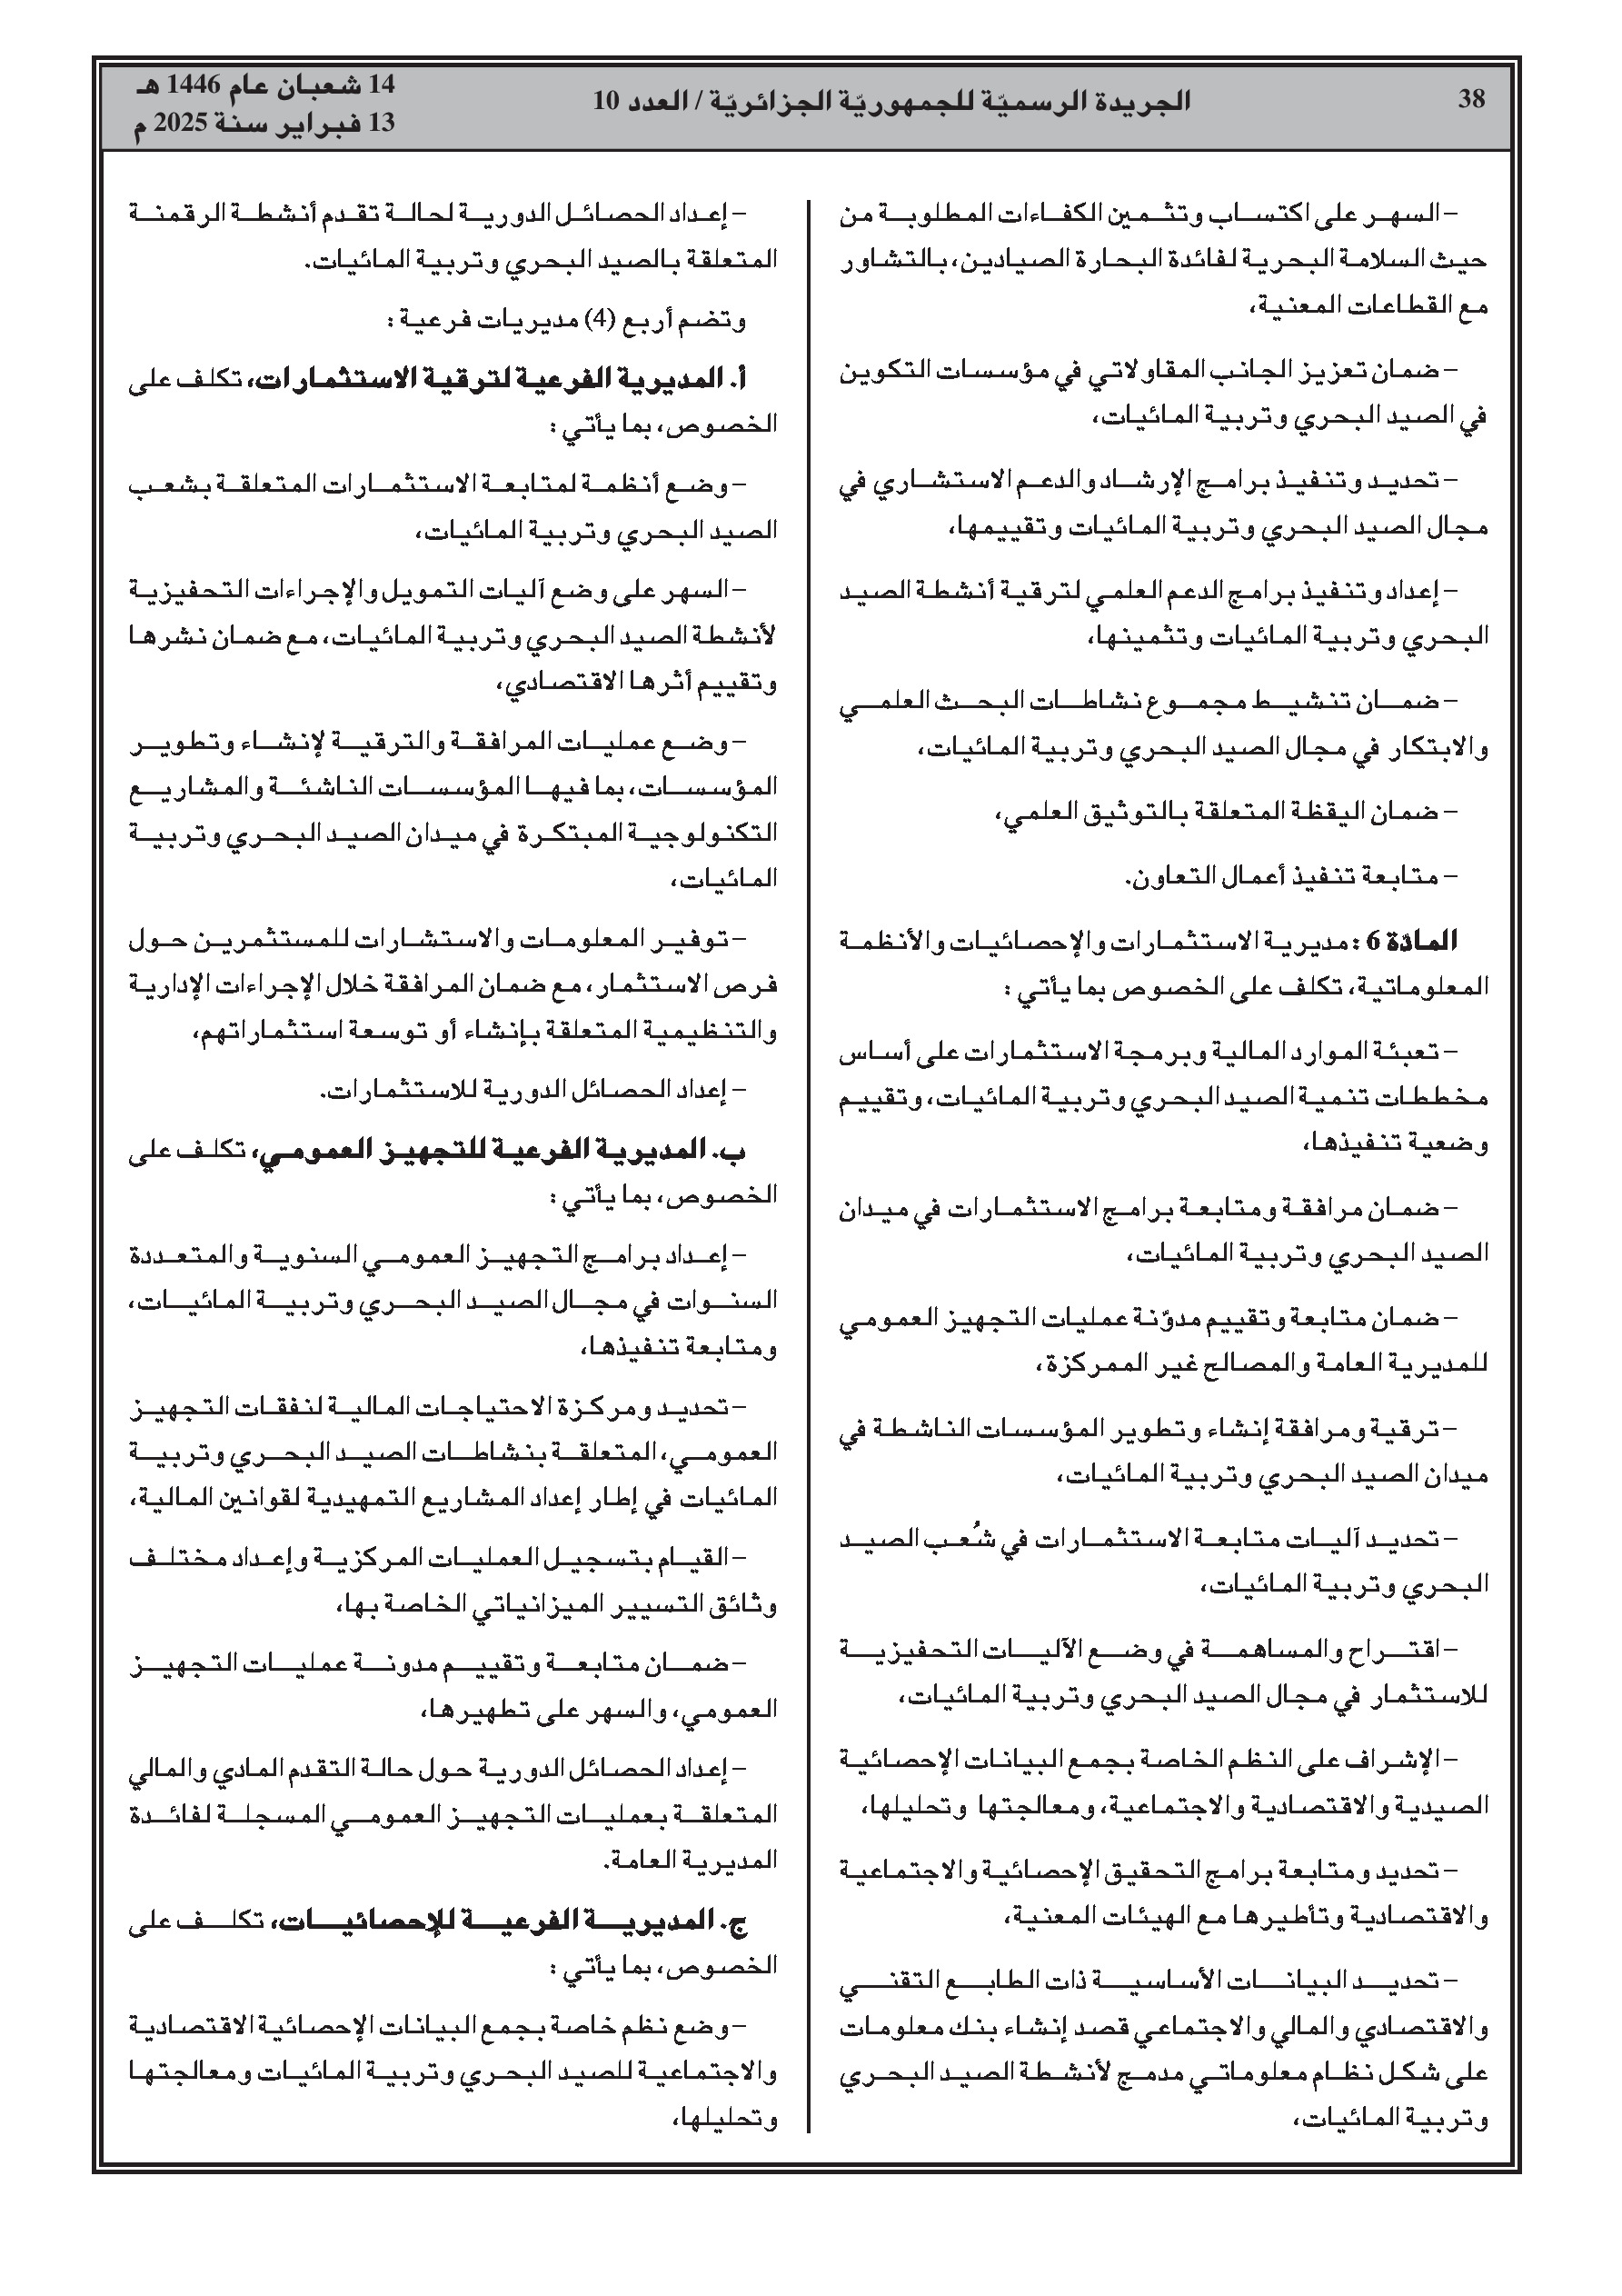 38
الجريدة الرسميّة للجمهوريّة الجزائريّة / العدد 10
14 شعبان عام 1446 هـ
13 فبراير سنة 2025 م
– السهر على اكتساب وتثمين الكفاءات المطلوبة من
حيث السلامة البحرية لفائدة البحارة الصيادين، بالتشاور
مع القطاعات المعنية،
– ضمان تعزيز الجانب المقاولاتي في مؤسسات التكوين
في الصيد البحري وتربية المائيات،
– تحديد وتنفيذ برامج الإرشاد والدعم الاستشاري في
مجال الصيد البحري وتربية المائيات وتقييمها،
– إعداد وتنفيذ برامج الدعم العلمي لترقية أنشطة الصيد
البحري وتربية المائيات وتثمينها،
– ضمان تنشيط مجموع نشاطات البحث العلمي
والابتكار في مجال الصيد البحري وتربية المائيات،
– ضمان اليقظة المتعلقة بالتوثيق العلمي،
– متابعة تنفيذ أعمال التعاون.
المادّة 6 : مديرية الاستثمارات والإحصائيات والأنظمة
المعلوماتية، تكلف على الخصوص بما يأتي :
– تعبئة الموارد المالية وبرمجة الاستثمارات على أساس
مخططات تنمية الصيد البحري وتربية المائيات، وتقييم
وضعية تنفيذها،
– ضمان مرافقة ومتابعة برامج الاستثمارات في ميدان
الصيد البحري وتربية المائيات،
– ضمان متابعة وتقييم مدوّنة عمليات التجهيز العمومي
للمديرية العامة والمصالح غير الممركزة،
– ترقية ومرافقة إنشاء وتطوير المؤسسات الناشطة في
ميدان الصيد البحري وتربية المائيات،
– تحديد آليات متابعة الاستثمارات في شُعب الصيد
البحري وتربية المائيات،
– اقتراح والمساهمة في وضع الآليات التحفيزية
للاستثمار في مجال الصيد البحري وتربية المائيات،
– الإشراف على النظم الخاصة بجمع البيانات الإحصائية
الصيدية والاقتصادية والاجتماعية، ومعالجتها وتحليلها،
– تحديد ومتابعة برامج التحقيق الإحصائية والاجتماعية
والاقتصادية وتأطيرها مع الهيئات المعنية،
– تحديد البيانات الأساسية ذات الطابع التقني
والاقتصادي والمالي والاجتماعي قصد إنشاء بنك معلومات
على شكل نظام معلوماتي مدمج لأنشطة الصيد البحري
وتربية المائيات،
– إعداد الحصائل الدورية لحالة تقدم أنشطة الرقمنة
المتعلقة بالصيد البحري وتربية المائيات.
وتضم أربع (4) مديريات فرعية :
أ. المديرية الفرعية لترقية الاستثمارات، تكلف على
الخصوص، بما يأتي :
– وضع أنظمة لمتابعة الاستثمارات المتعلقة بشعب
الصيد البحري وتربية المائيات،
– السهر على وضع آليات التمويل والإجراءات التحفيزية
لأنشطة الصيد البحري وتربية المائيات، مع ضمان نشرها
وتقييم أثرها الاقتصادي،
– وضع عمليات المرافقة والترقية لإنشاء وتطوير
المؤسسات، بما فيها المؤسسات الناشئة والمشاريع
التكنولوجية المبتكرة في ميدان الصيد البحري وتربية
المائيات،
– توفير المعلومات والاستشارات للمستثمرين حول
فرص الاستثمار، مع ضمان المرافقة خلال الإجراءات الإدارية
والتنظيمية المتعلقة بإنشاء أو توسعة استثماراتهم،
– إعداد الحصائل الدورية للاستثمارات.
ب. المديرية الفرعية للتجهيز العمومي، تكلف على
الخصوص، بما يأتي :
– إعداد برامج التجهيز العمومي السنوية والمتعددة
السنوات في مجال الصيد البحري وتربية المائيات،
ومتابعة تنفيذها،
– تحديد ومركزة الاحتياجات المالية لنفقات التجهيز
العمومي، المتعلقة بنشاطات الصيد البحري وتربية
المائيات في إطار إعداد المشاريع التمهيدية لقوانين المالية،
– القيام بتسجيل العمليات المركزية وإعداد مختلف
وثائق التسيير الميزانياتي الخاصة بها،
– ضمان متابعة وتقييم مدونة عمليات التجهيز
العمومي، والسهر على تطهيرها،
– إعداد الحصائل الدورية حول حالة التقدم المادي والمالي
المتعلقة بعمليات التجهيز العمومي المسجلة لفائدة
المديرية العامة.
ج. المديرية الفرعية للإحصائيات، تكلف على
الخصوص، بما يأتي :
– وضع نظم خاصة بجمع البيانات الإحصائية الاقتصادية
والاجتماعية للصيد البحري وتربية المائيات ومعالجتها
وتحليلها،